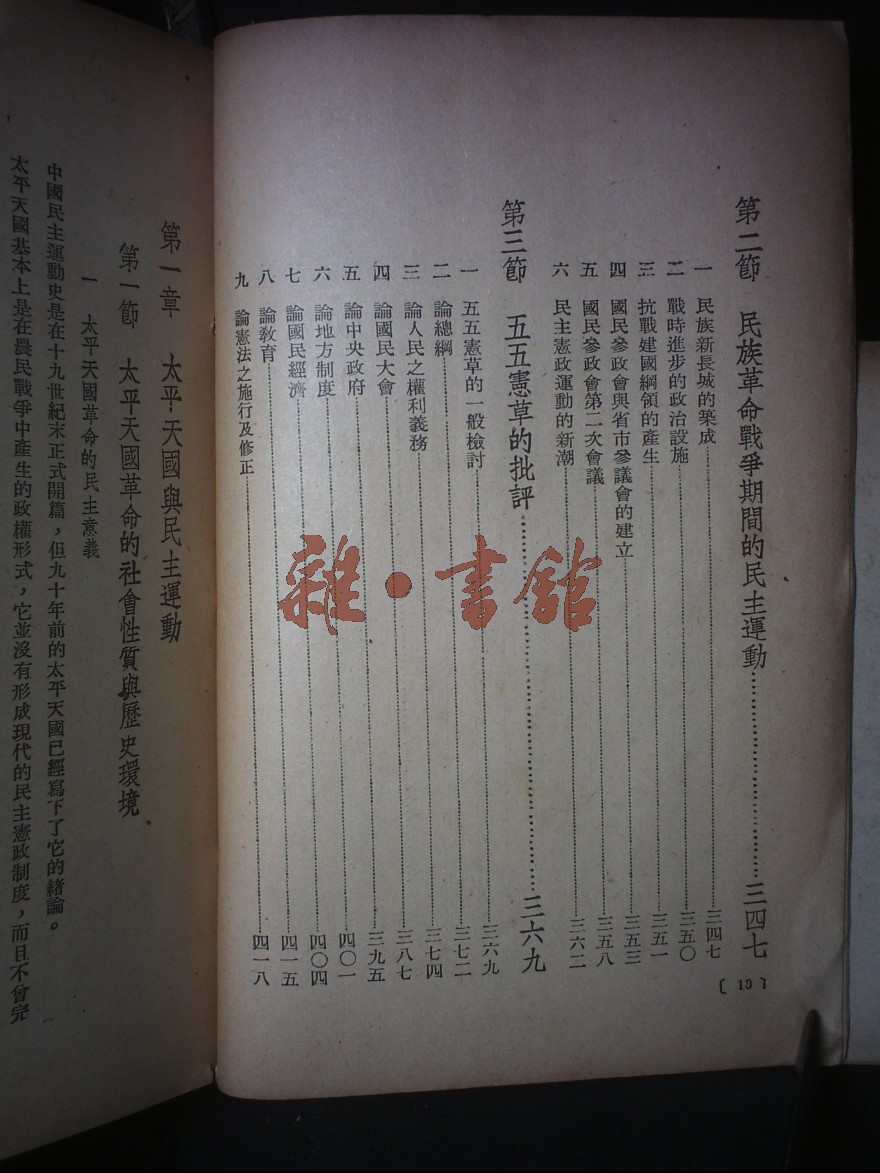 第二節 民族革命戰爭期間的民主運動……三四七
一 民族新長城的築成……三四七
二 戰時進步的政治設施……三五〇
三 抗戰建國綱領的產生……三五一
四 國民參政會與省市參議會的建立……三五三
五 國民參政會第二次會議……三五八
六 民主憲政運動的新潮……三六二
第三節 五五憲草的批評……三六九
一 五五憲草的一般檢討……三六九
二 論總綱……三七二
三 論人民之權利義務……三七四
四 論國民大會……三八七
五 論中央政府……三九五
六 論地方制度……四〇一
七 論國民經濟……四〇四
八 論敎育……四一五
九 論憲法之施行及修正……四一八
〔19〕
第一章 太平天國與民主運動
第一節 太平天國革命的社會性質與歷史環境
一 太平天國革命的民主意義
中國民主運動史是在十九世紀末正式開篇，但九十年前的太平天國已經寫下了它的緒論。
太平天國基本上是在農民戰爭中產生的政權形式，它並沒有形成現代的民主憲政制度，而且不曾完
雜·書館